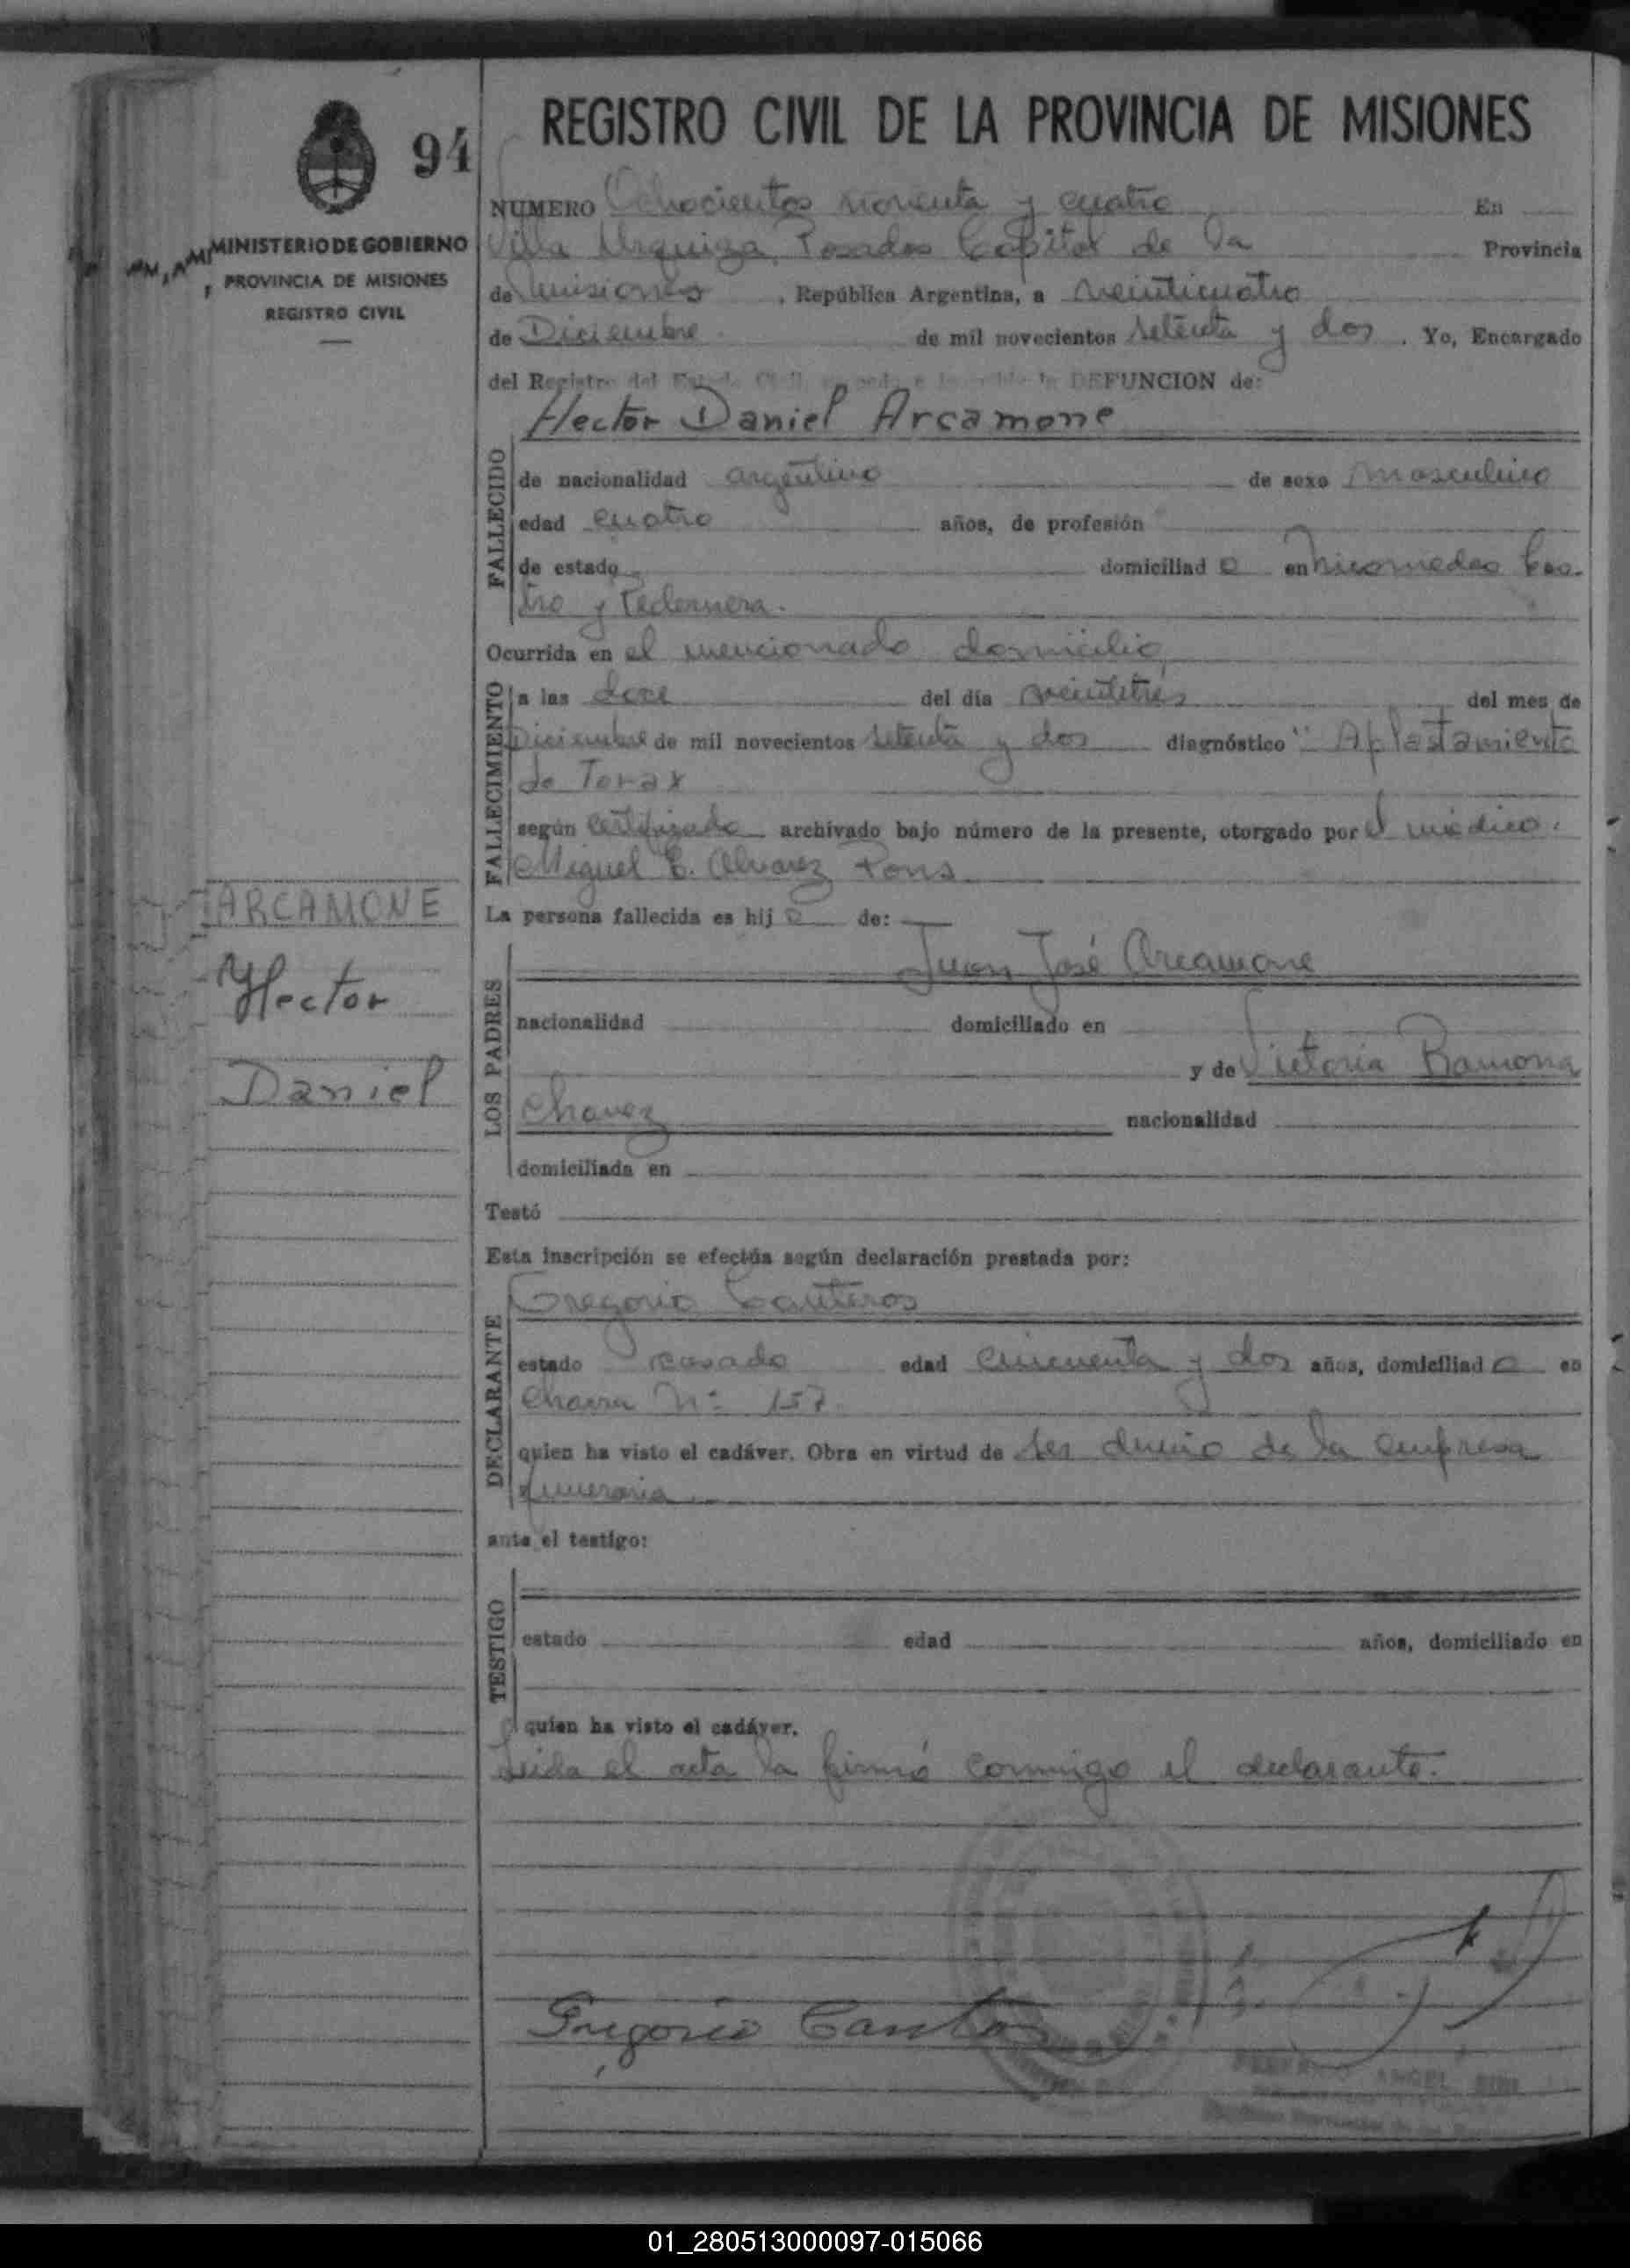 REGISTRO CIVIL DE LA PROVINCIA DE MISIONES
94
MINISTERIO DE GOBIERNO
PROVINCIA DE MISIONES
REGISTRO CIVIL
NUMERO Ochocientos noventa y cuatro En
Villa Urquiza, Posadas Capital de la Provincia
de Misiones, República Argentina, a veinticuatro
de Diciembre de mil novecientos setenta y dos. Yo, Encargado
del Registro del DEFUNCION de:
Hector Daniel Arcamone
FALLECIDO
de nacionalidad argentino de sexo masculino
edad cuatro años, de profesión
de estado domiciliad o en Nicomedes Cas-
tro y Pedernera.
Ocurrida en el mencionado domicilio
FALLECIMIENTO
a las doce del día veintitrés del mes de
Diciembre de mil novecientos setenta y dos diagnóstico "Aplastamiento
de Torax
según certificado archivado bajo número de la presente, otorgado por el médico.
Miguel E. Alvarez Pons
ARCAMONE
Hector
Daniel
La persona fallecida es hij o de:
LOS PADRES
Juan José Arcamone
nacionalidad domiciliado en
y de Victoria Ramona
Chavez nacionalidad
domiciliada en
Testó
Esta inscripción se efectúa según declaración prestada por:
DECLARANTE
Gregorio Canteros
estado casado edad cincuenta y dos años, domiciliad o en
Chacra Nº 157.
quien ha visto el cadáver. Obra en virtud de ser dueño de la empresa
funeraria
ante el testigo:
TESTIGO
estado edad años, domiciliado en
quien ha visto el cadáver.
Leida el acta la firmó conmigo el declarante.
Gregorio
ANGEL
01_280513000097-015066